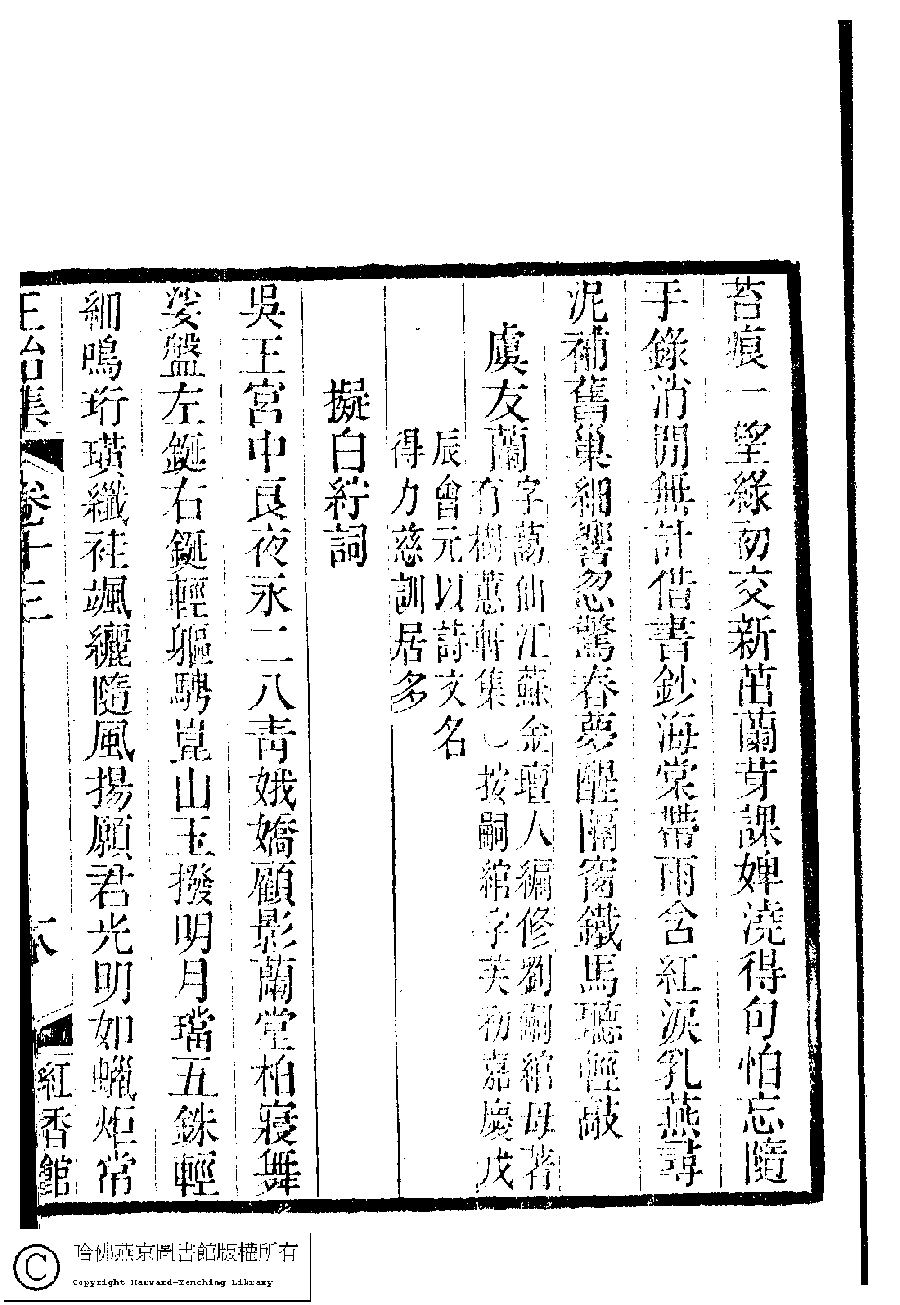 苔痕一望綠初交新茁蘭芽課婢澆得句怕忘隨
手錄消閒無計借書鈔海棠帶雨含紅淚乳燕尋
泥補舊巢細響忽驚春夢醒隔窗鐵馬聽輕敲
虞友蘭
字蒻仙江蘇金壇人編修劉嗣綰母著
有樹蕙軒集
按嗣綰字芙初嘉慶戊
辰會元以詩文名
得力慈訓居多
擬白紵詞
吳王宮中良夜永二八青娥嬌顧影蘭堂柏寢舞
婆盤左鋋右鋋輕軀騁崑山玉撥明月璫五銖輕
細鳴珩璜纖袿颯纚隨風揚願君光明如蠟炬常
正始集
卷十三
紅香館
哈佛燕京圖書館版權所有
Copyright Harvard-Yenching Library